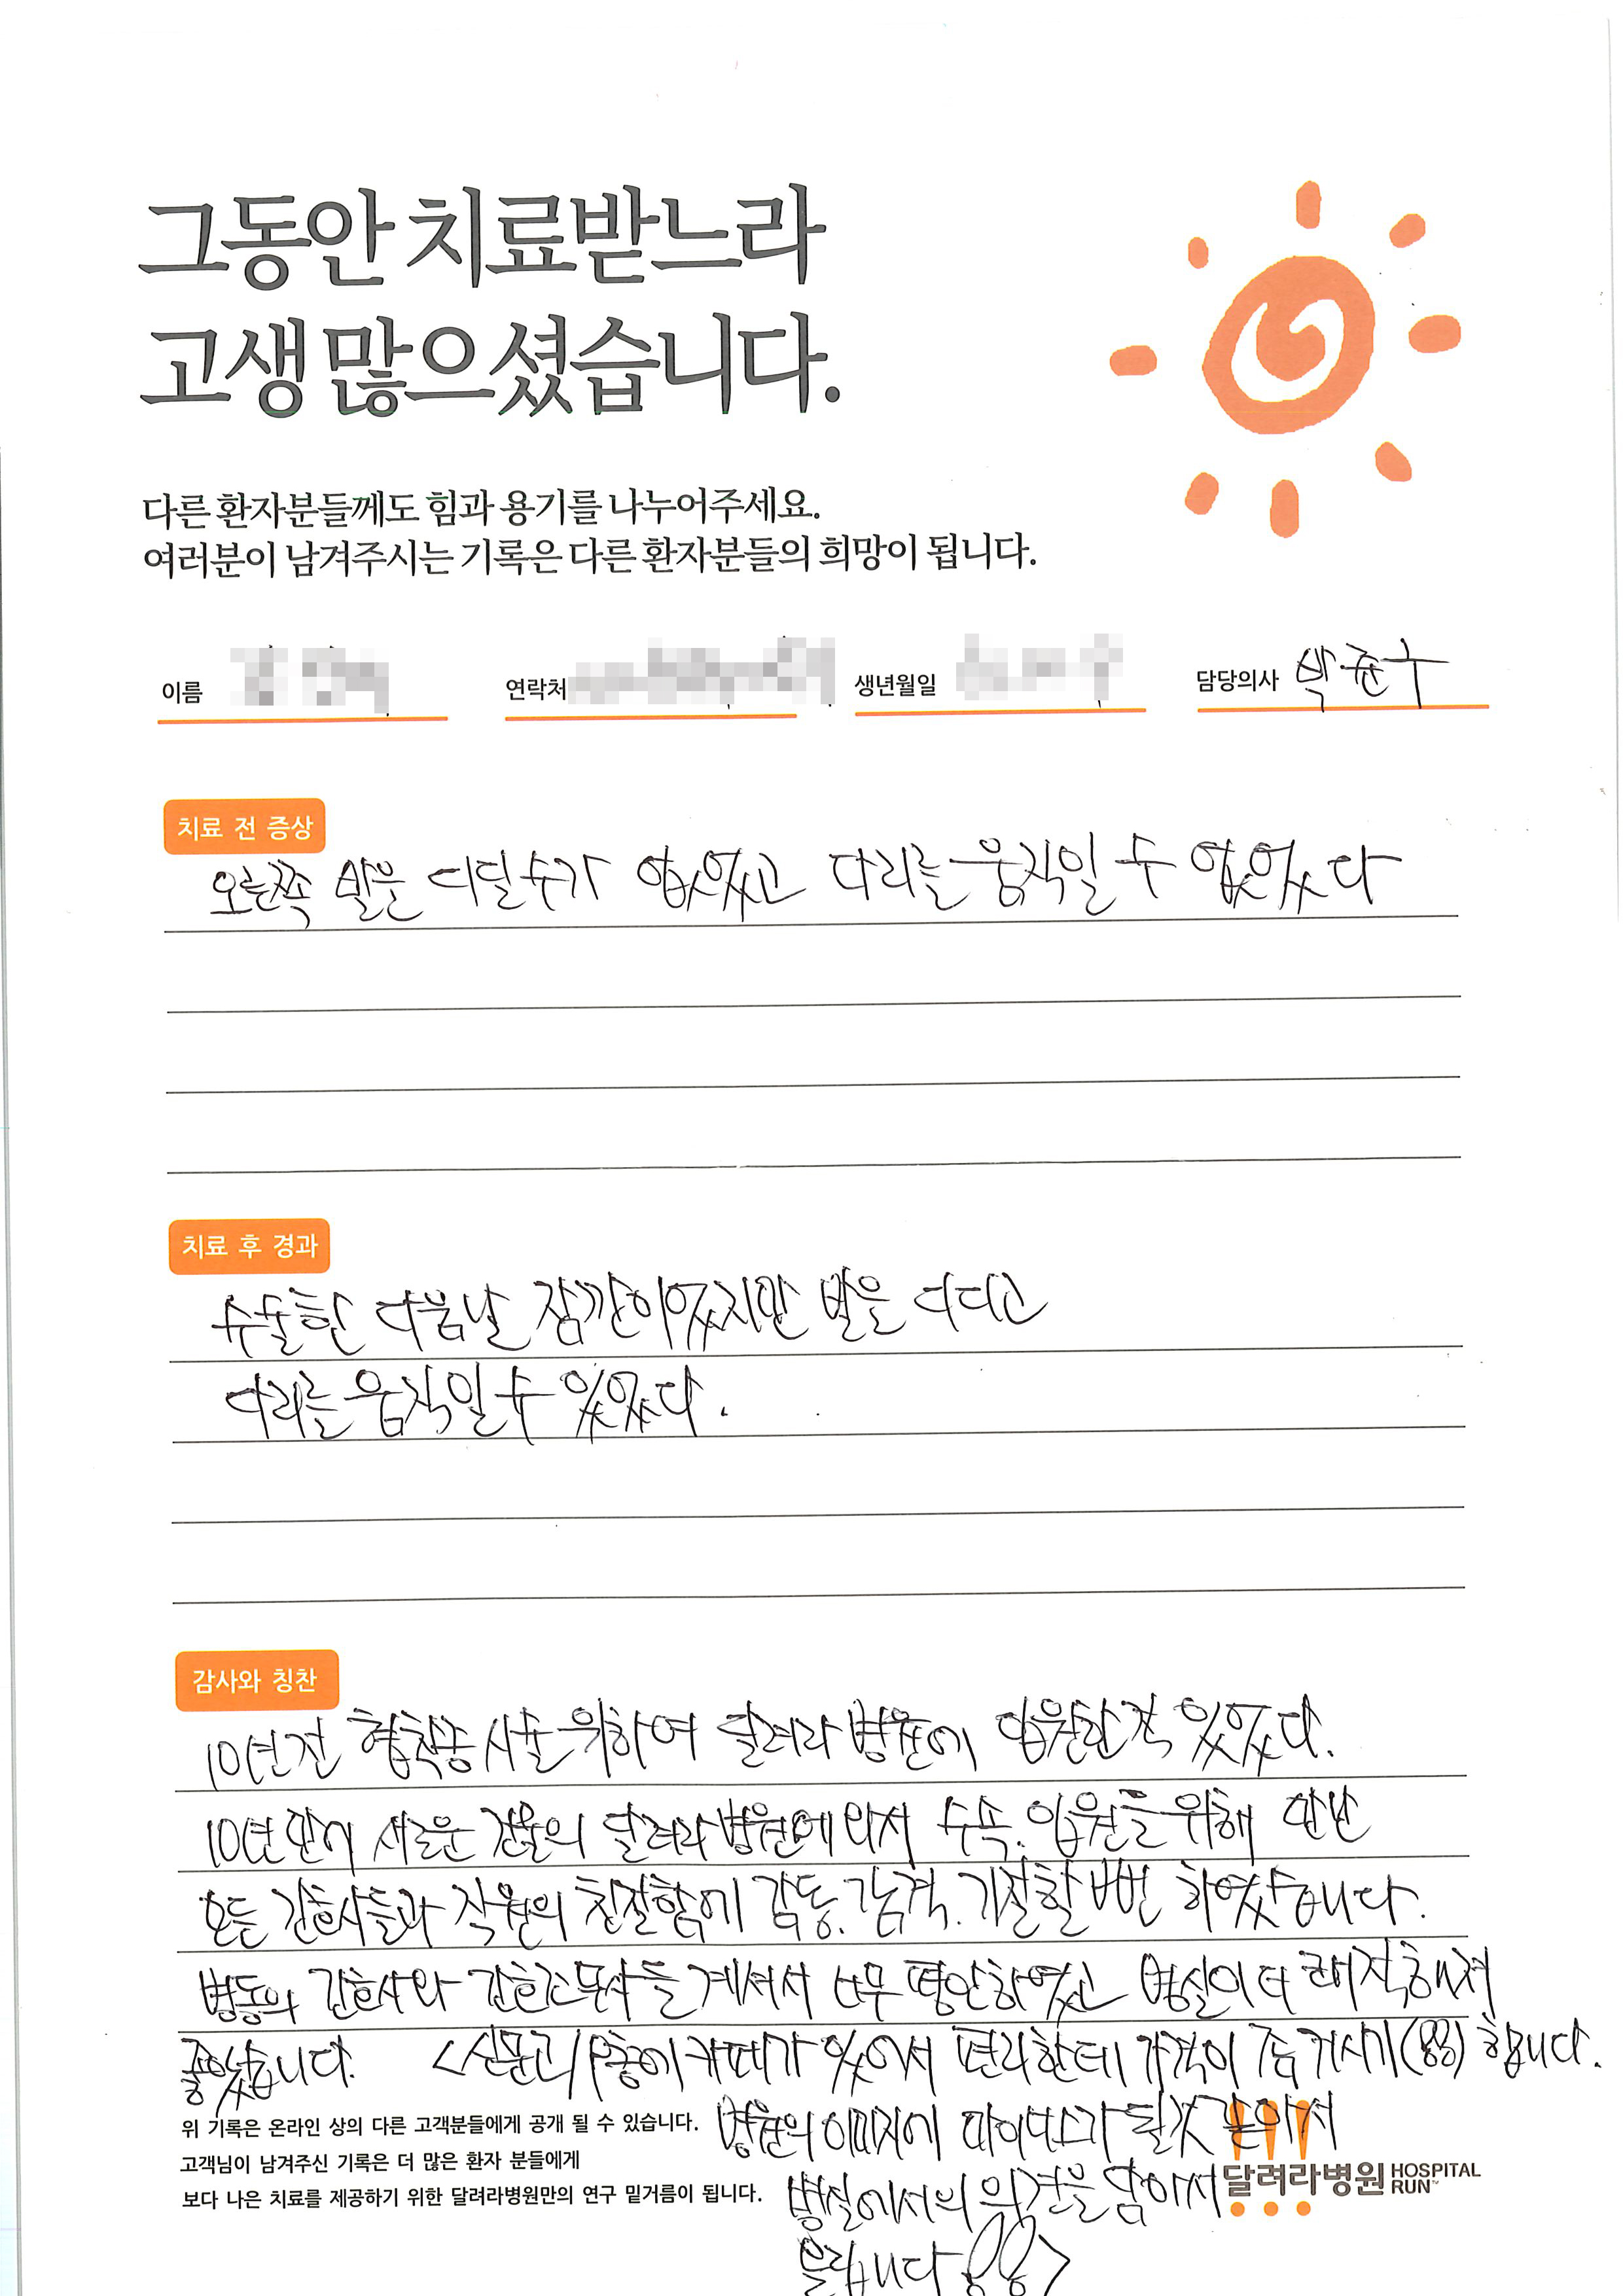 그동안 치료받느라
고생 많으셨습니다.
다른 환자분들께도 힘과 용기를 나누어주세요.
여러분이 남겨주시는 기록은 다른 환자분들의 희망이 됩니다.
이름 연락처 생년월일 담당의사 박준수
치료 전 증상
오른쪽 발을 디딜수가 없었고 다리를 움직일 수 없었다
치료 후 경과
수술한 다음날 잠깐이었지만 발을 디디고
다리를 움직일 수 있었다.
감사와 칭찬
10년전 협착증 시술 위하여 달려라병원에 입원한적 있었다.
10년만에 새로운 건물의 달려라병원에 와서 수속. 입원를 위해 만난
모든 간호사들과 직원의 친절함에 감동. 감격. 기절할뻔 하였습니다.
병동의 간호사와 간호조무사들 계셔서 너무 평안하였고 병실이 더 쾌적해져
좋았습니다. <신문고/ 1층에 카페가 있어서 편리한데 가격이 좀 거시기(ㅎㅎ) 합니다.
병원의 이미지에 마이너스가 될것 같아서
병실에서의 의견을 담아서
올립니다 ㅎㅎ>
위 기록은 온라인 상의 다른 고객분들에게 공개 될 수 있습니다.
고객님이 남겨주신 기록은 더 많은 환자 분들에게
보다 나은 치료를 제공하기 위한 달려라병원만의 연구 밑거름이 됩니다.
달려라병원 HOSPITAL
RUN™